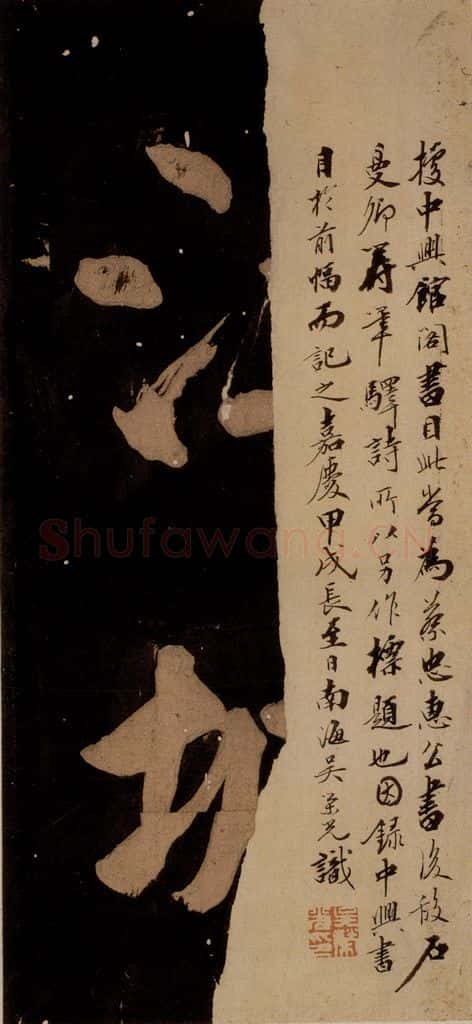 據中興館閣書目此當為蔡忠惠公書後石
曼卿籌筆驛詩所以另作標題也因錄中興書
目於前幅而記之嘉慶甲戌長至日南海吳榮光識
Shufawang.CN